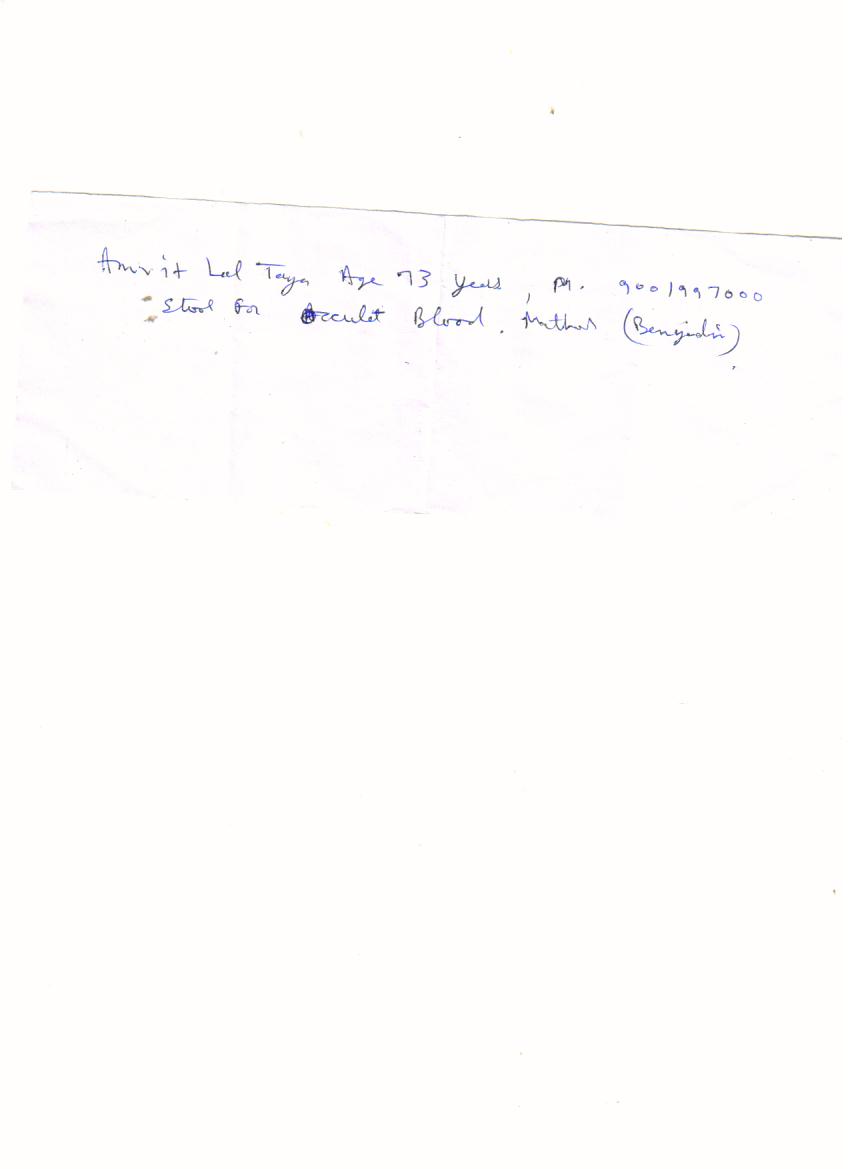 Amrit Lal Taya Age 73 years, M. 9001997000
Stool for Occulet Blood. Method (Benzidin)